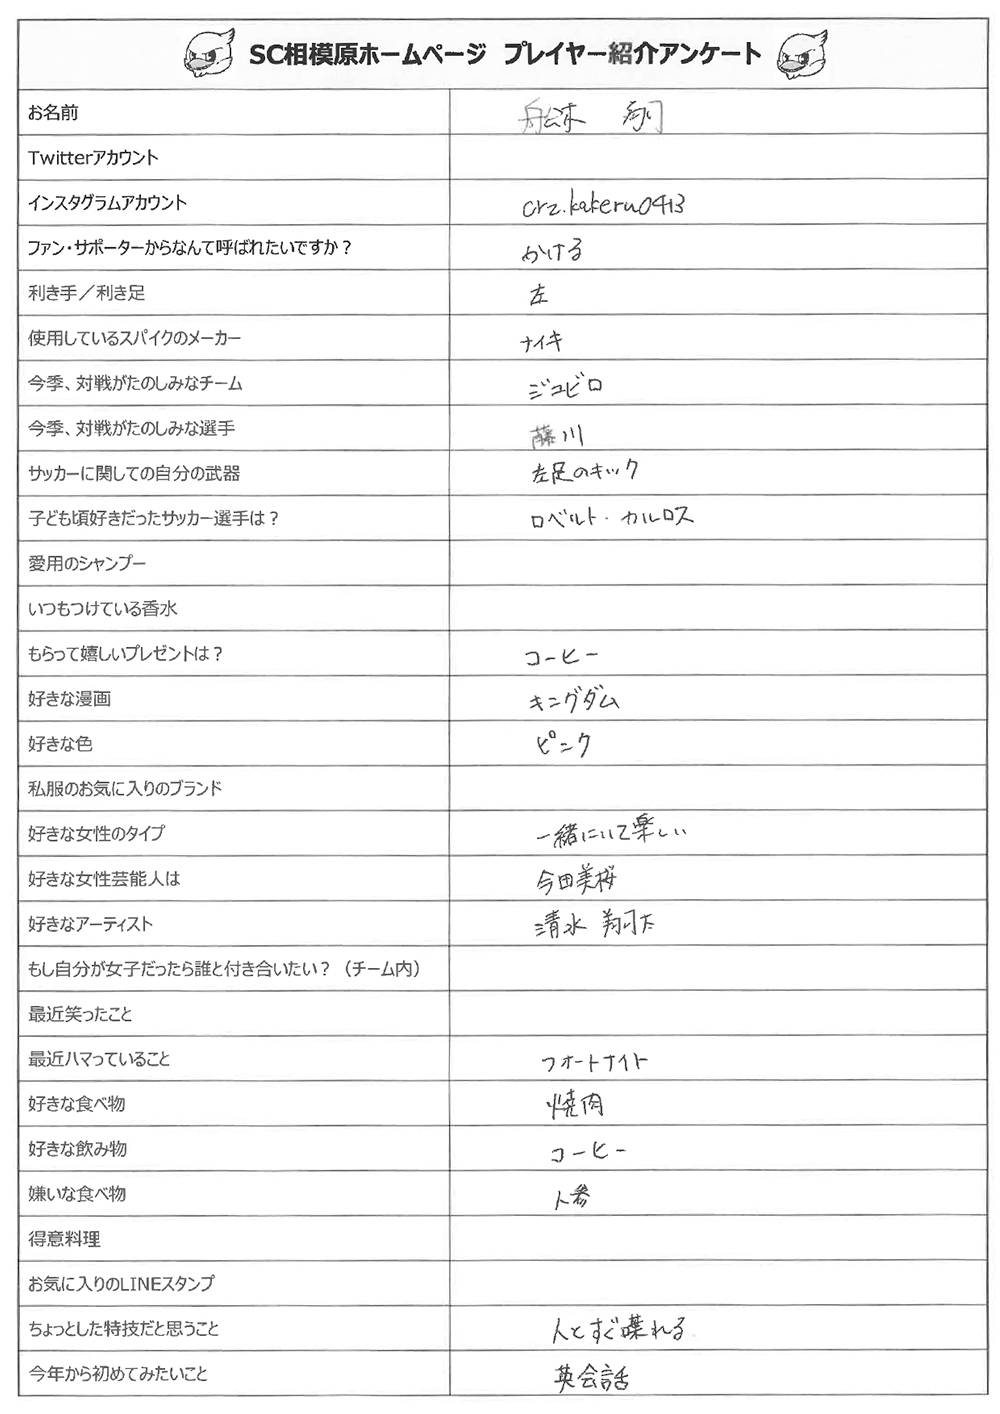 SC相模原ホームページ プレイヤー紹介アンケート
お名前 舩木 翔
Twitterアカウント
インスタグラムアカウント crz.kakeru0413
ファン・サポーターからなんて呼ばれたいですか？ かける
利き手／利き足 左
使用しているスパイクのメーカー ナイキ
今季、対戦がたのしみなチーム ジュビロ
今季、対戦がたのしみな選手 藤川
サッカーに関しての自分の武器 左足のキック
子ども頃好きだったサッカー選手は？ ロベルト・カルロス
愛用のシャンプー
いつもつけている香水
もらって嬉しいプレゼントは？ コーヒー
好きな漫画 キングダム
好きな色 ピンク
私服のお気に入りのブランド
好きな女性のタイプ 一緒にいて楽しい
好きな女性芸能人は 今田美桜
好きなアーティスト 清水 翔太
もし自分が女子だったら誰と付き合いたい？（チーム内）
最近笑ったこと
最近ハマっていること フォートナイト
好きな食べ物 焼肉
好きな飲み物 コーヒー
嫌いな食べ物 人参
得意料理
お気に入りのLINEスタンプ
ちょっとした特技だと思うこと 人とすぐ喋れる
今年から初めてみたいこと 英会話